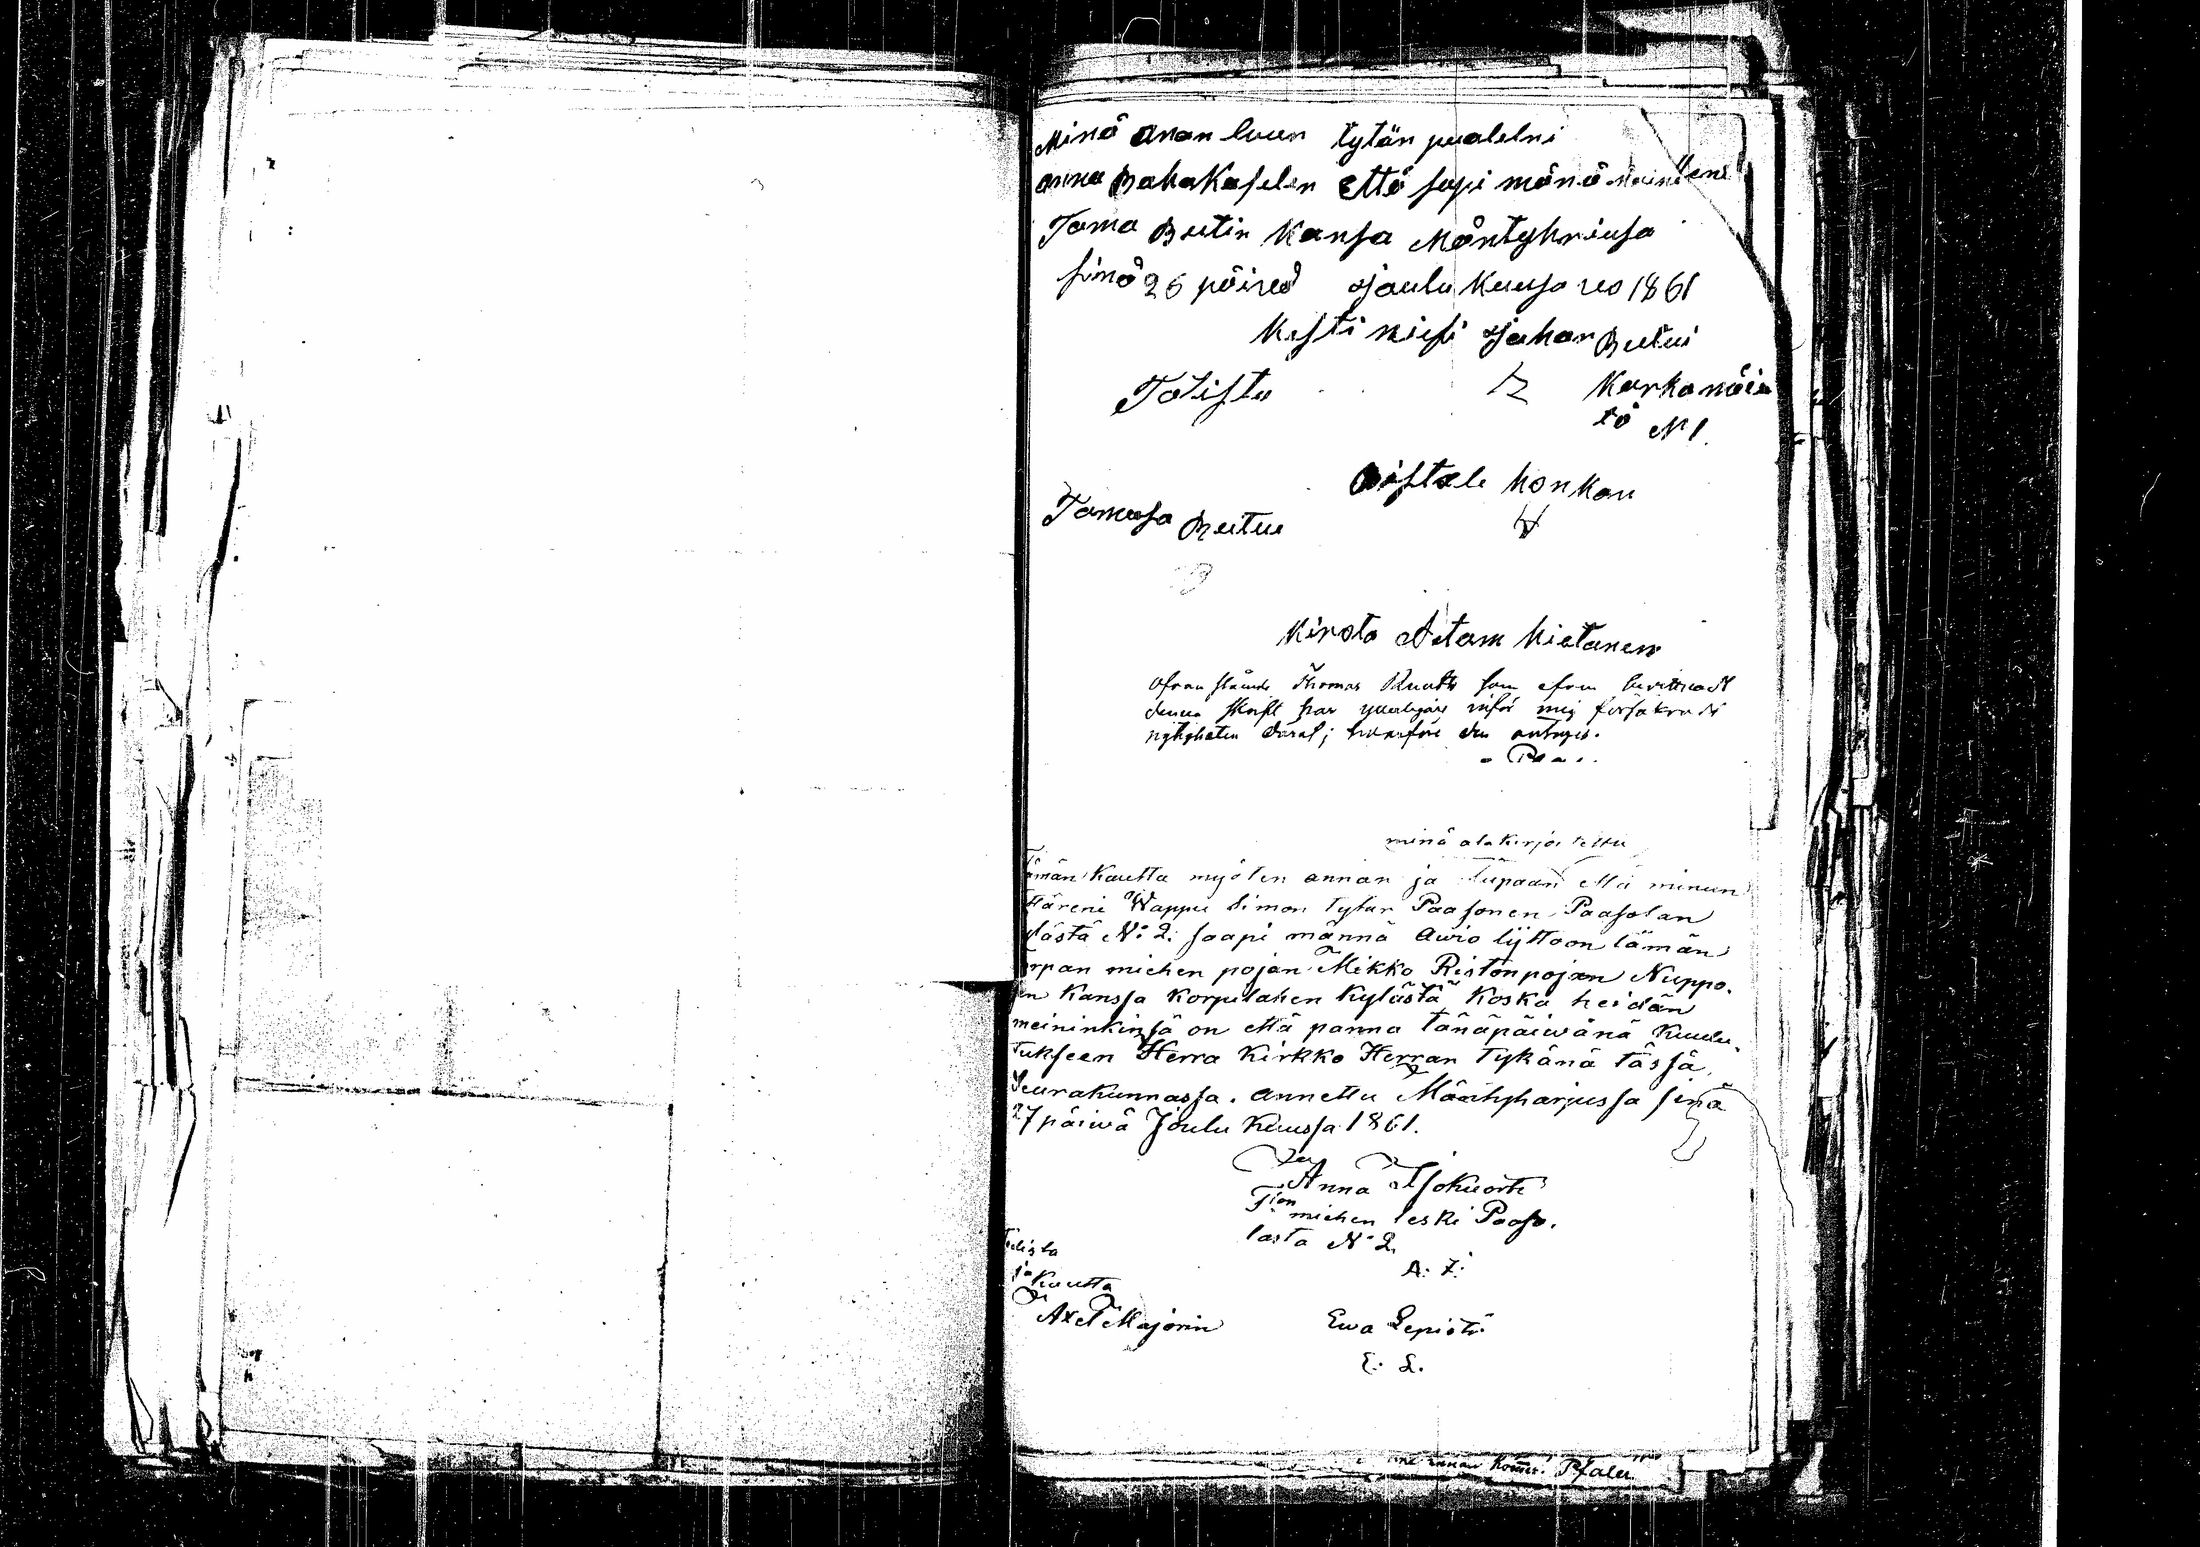 Minä anan luun tytän puolelni
anna PahaKaselen Että sapi mänä naimisens
Toma Ruutin Kansa Mäntyhriusa
sinä 26 päived Jaulu Kuusa uo 1861
Kesti niesi Johan Ruutui
Totista Karkamäin
tö N 1
Cristele Konkon
Tomasa Ruutuu
Kirota Aetam Hietanen
Ofvan stående Thomas Ruutu som åfven bevittnadt
denna skrift har ytterligare inför mig försäkradt
rigtigheten däraf; hvarföre den antages.
minä alakirjoitettu
Tämän Kautta myöten annan ja lupaan että minun
ttäreni Wappu Simon tytär Paasonen Paasolan
lästä N:o 2: saapi männä awio lijttoon tämän
orpan miehen pojan Mikko Ristonpojan Nuppo.
en Kanssa Korpilahen Kylästä Koska heidän
meininkinsä on että panna tänäpäiwänä Kuulu.
tukseen Herra Kirkko Herran tykänä tässä
Seurakunnassa. annettu Mäntyharjussa sinä
27 päiwä Joulu Kuussa 1861.
Anna Isokuorti
Tion miehen leski Paaso.
lasta N:o 2
A. I.
Todista
ja Kautta
Axel Majorin Ewa Lepistö
E. L.